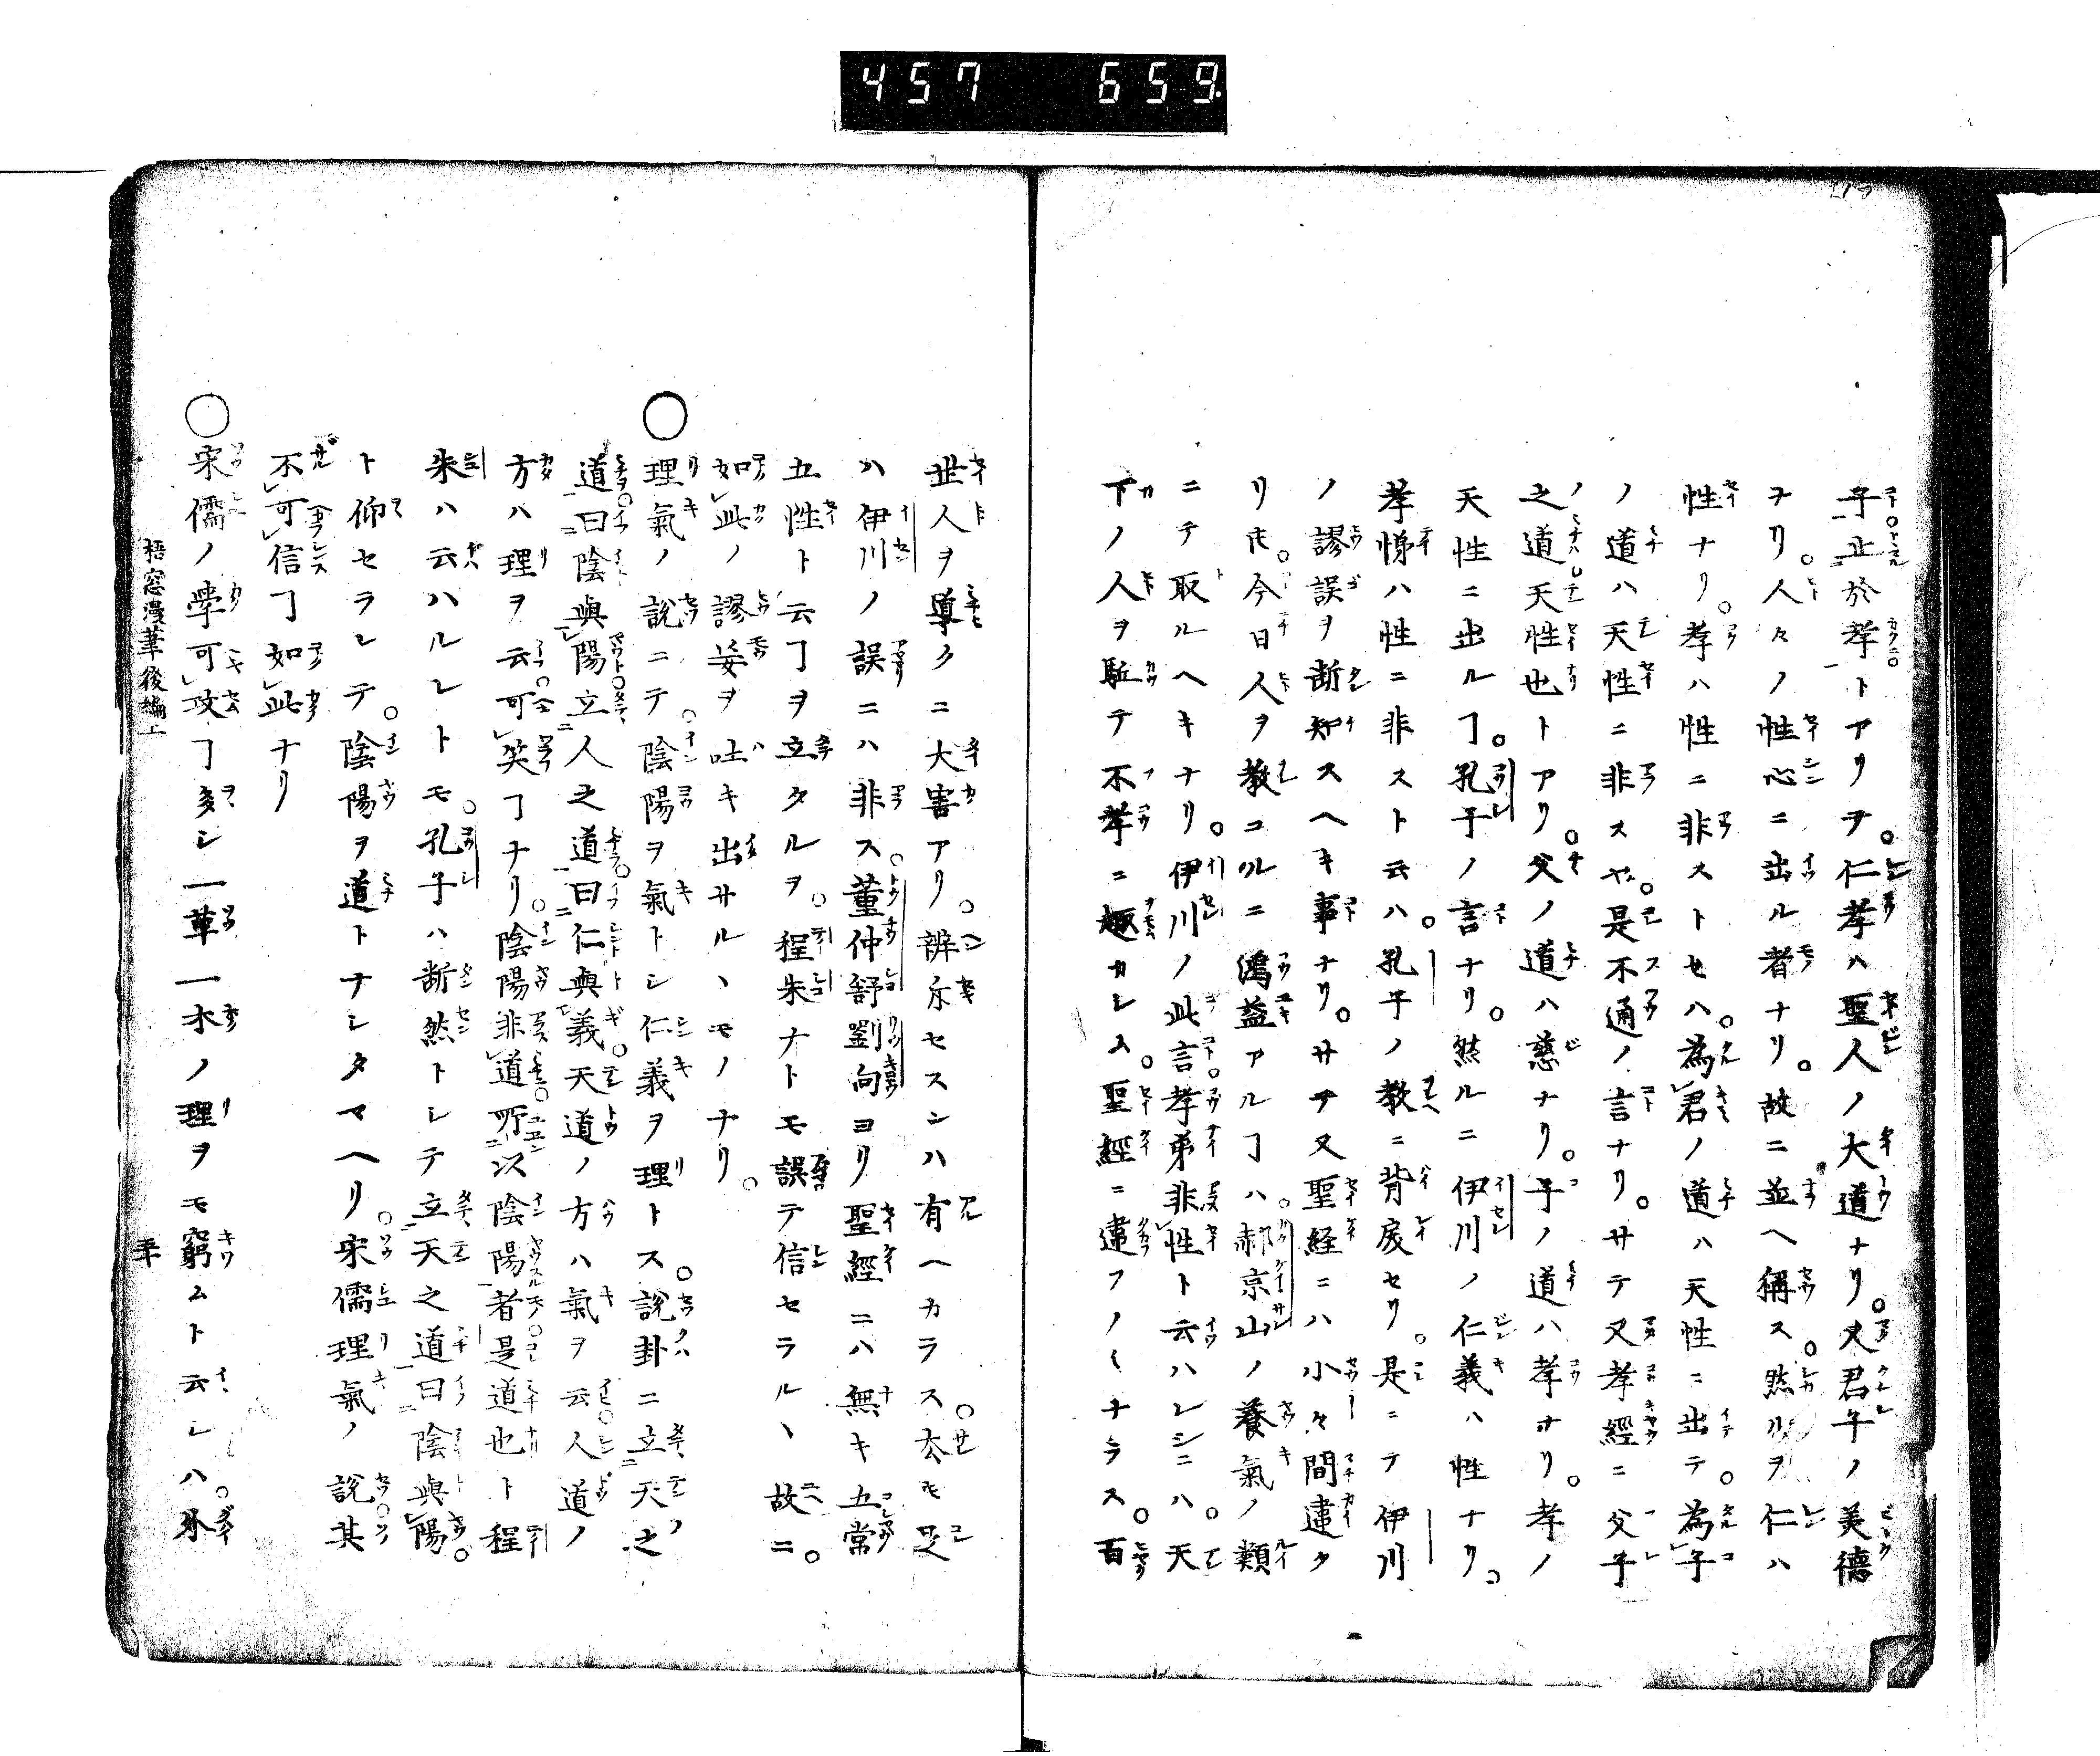 457 659
子止於孝トアリヲ。仁孝ハ聖人ノ大道ナリ。又君子ノ美德
ヲリ。人々ノ性心ニ出ル者ナリ。故ニ並ヘ稱ス。然ルヲ仁ハ
性ナリ。孝ハ性ニ非ストセハ。為君ノ道ハ天性ニ出テ。為子
ノ道ハ天性ニ非スヤ。是不通ノ言ナリ。サテ又孝經ニ父子
之道天性也トアリ。父ノ道ハ慈ナリ。子ノ道ハ孝ナリ。孝ノ
天性ニ出ルヿ。孔子ノ言ナリ。然ルニ伊川ノ仁義ハ性ナリ。
孝悌ハ性ニ非スト云ハ。孔子ノ教ニ背戻セリ。是ニテ伊川
ノ謬誤ヲ断知スヘキ事ナリ。サテ又聖経ニハ小々間違タ
リ𪜈。今日人ヲ教コルニ鴻益アルヿハ。郝京山ノ養氣ノ類
ニテ取ルヘキナリ。伊川ノ此言孝弟非性ト云ハレシニハ。天
下ノ人ヲ駈テ不孝ニ趣カシム。聖經ニ違フノミナラス。百
世人ヲ導クニ大害アリ。辨斥セスンハ有ヘカラス。卋モ是
ハ伊川ノ誤ニハ非ス。董仲舒劉向ヨリ聖經ニハ無キ五常
五性ト云ヿヲ立タルヲ。程朱ナトモ誤テ信セラルヽ故ニ。
如此ノ謬妄ヲ吐キ出サルヽモノナリ。
○理氣ノ說ニテ。陰陽ヲ氣トシ仁義ヲ理トス。說卦ニ立天之
道曰陰與陽立人之道曰仁與義。天道ノ方ハ氣ヲ云人道ノ
方ハ理ヲ云可笑ヿナリ。陰陽非道所以陰陽者是道也ト程
朱ハ云ハルレトモ。孔子ハ断然トシテ立天之道曰陰與陽。
ト仰セラレテ。陰陽ヲ道トナシタマヘリ。宋儒理氣ノ說其
不可信ヿ如此ナリ
○宋儒ノ學可攻ヿ多シ一草一木ノ理ヲモ窮ムト云レハ。外
梧窓漫筆後編上